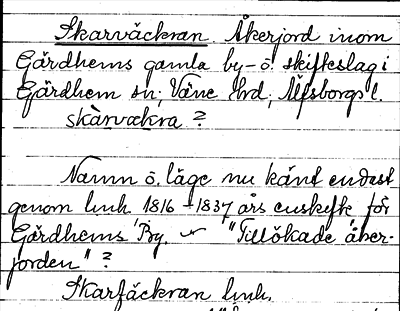 Skarväckran Åkerjord inom
Gärdhems gamla by- o. skifteslag i
Gärdhem sn, Väne hrd, Älfsborgs l.
skàrvækra ?
Namn o. läge nu känt endast
genom lmh. 1816 - 1837 års enskifte för
Gärdhems By. "Tillökade åker-
jorden" ?
Skarfäckran lmh.